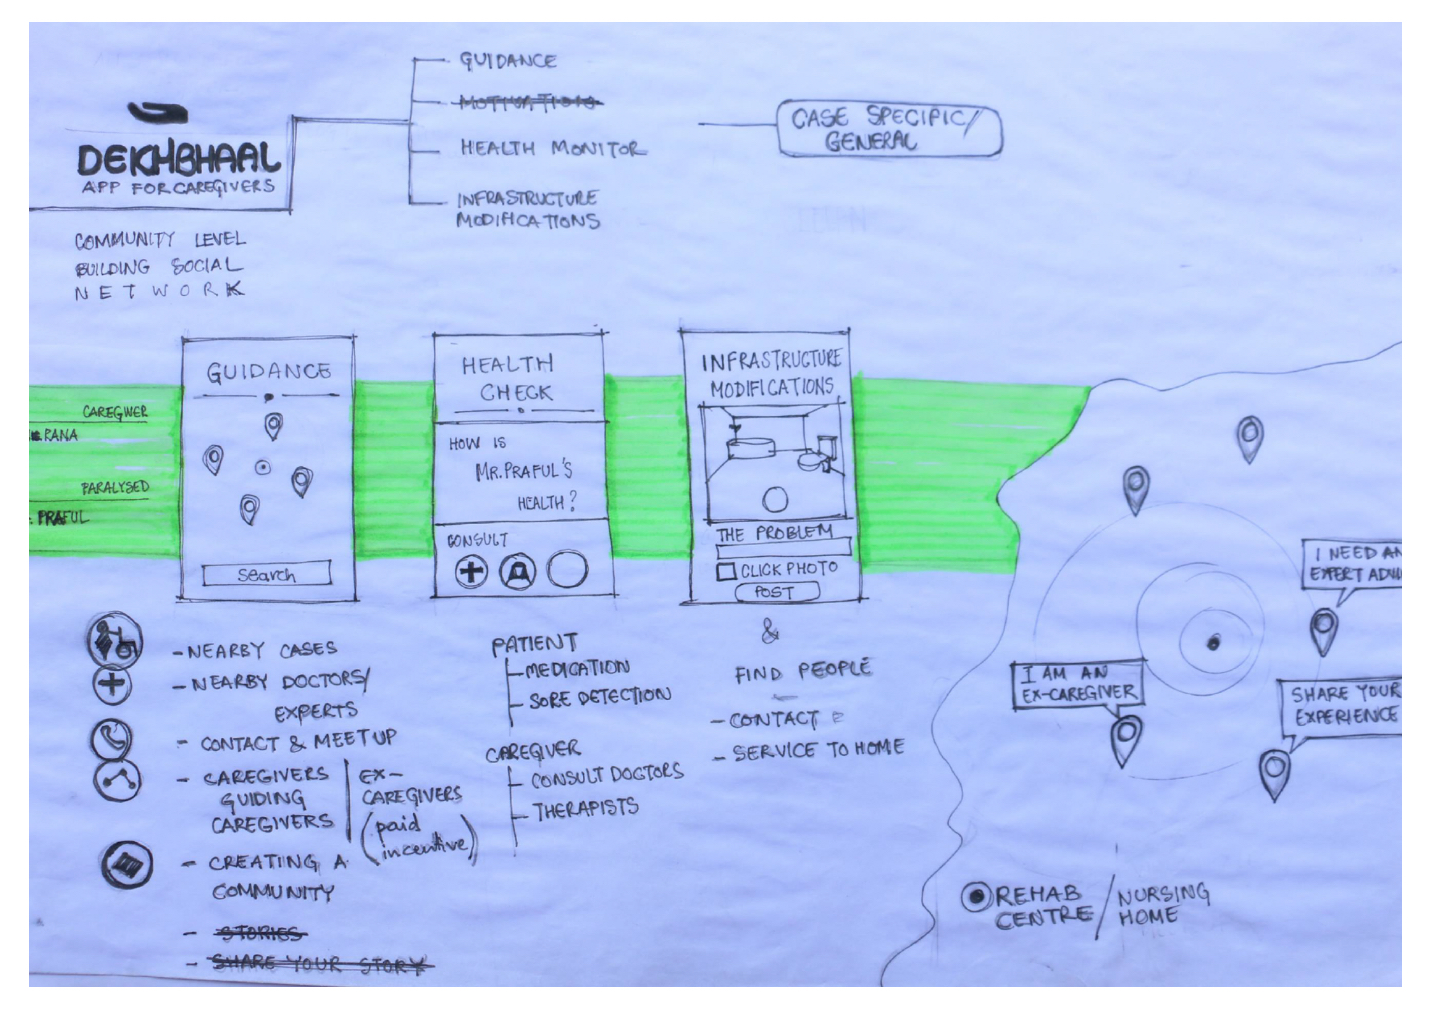 GUIDANCE
MOTIVATIONS
HEALTH MONITOR
INFRASTRUCTURE
MODIFICATIONS
CASE SPECIFIC/
GENERAL
DEKHBHAAL
APP FOR CAREGIVERS
COMMUNITY LEVEL
BUILDING SOCIAL
NETWORK
CAREGIVER
RANA
PARALYSED
PRAFUL
GUIDANCE
Search
HEALTH
CHECK
HOW IS
MR. PRAFUL'S
HEALTH?
CONSULT
INFRASTRUCTURE
MODIFICATIONS
THE PROBLEM
CLICK PHOTO
POST
- NEARBY CASES
- NEARBY DOCTORS/
EXPERTS
- CONTACT & MEET UP
- CAREGIVERS
GUIDING
CAREGIVERS
EX-
CAREGIVERS
(paid
incentive)
- CREATING A
COMMUNITY
- STORIES
- SHARE YOUR STORY
PATIENT
- MEDICATION
- SORE DETECTION
CAREGIVER
- CONSULT DOCTORS
- THERAPISTS
&
FIND PEOPLE
- CONTACT
- SERVICE TO HOME
I NEED AN
EXPERT
I AM AN
EX-CAREGIVER
SHARE YOUR
EXPERIENCE
REHAB
CENTRE/
NURSING
HOME